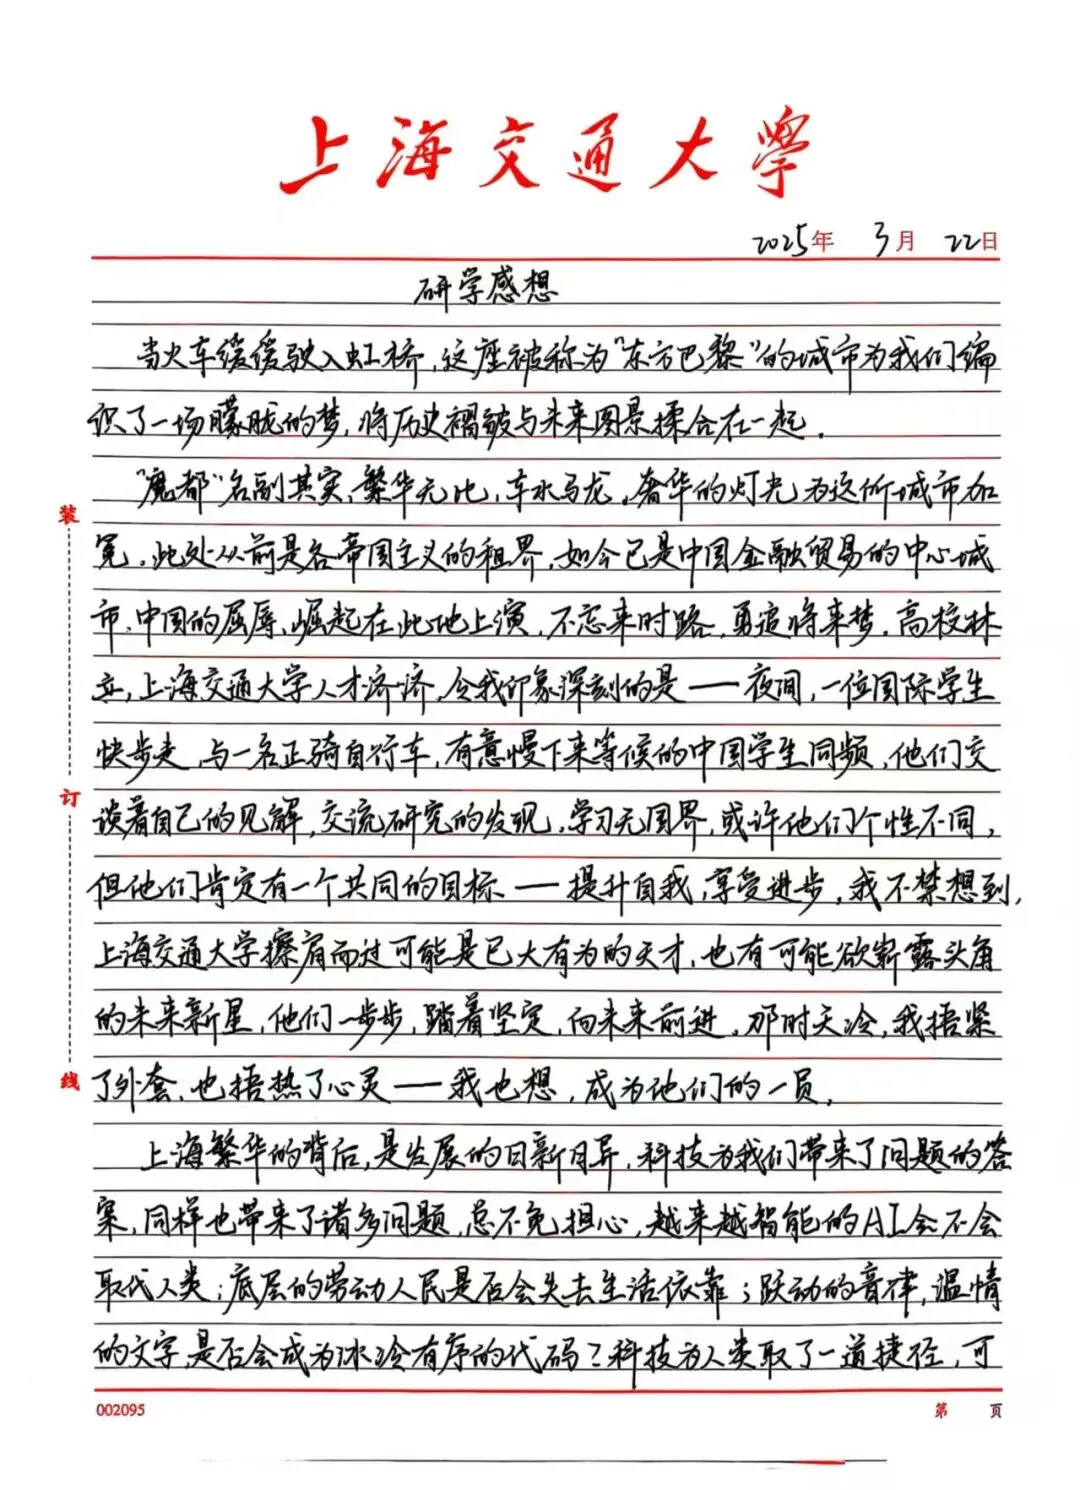 上海交通大学
2025年 3月 22日
研学感想
当火车缓缓驶入虹桥，这座被称为“东方巴黎”的城市为我们编
识了一场朦胧的梦，将历史褶皱与未来图景揉合在一起。
“魔都”名副其实，繁华无比，车水马龙。奢华的灯光为这所城市加
冕。此处从前是各帝国主义的租界，如今已是中国金融贸易的中心城
市，中国的屈辱、崛起在此地上演，不忘来时路，勇追将来梦。高校林
立，上海交通大学人才济济，令我印象深刻的是——夜间，一位国际学生
快步走，与一名正骑自行车，有意慢下来等候的中国学生同频，他们交
谈着自己的见解，交流研究的发现。学习无国界，或许他们个性不同，
但他们肯定有一个共同的目标——提升自我，享受进步。我不禁想到，
上海交通大学擦肩而过可能是已大有为的天才，也有可能欲崭露头角
的未来新星，他们一步步，踏着坚定，向未来前进。那时天冷，我捂紧
了外套，也捂热了心灵——我也想，成为他们的一员。
上海繁华的背后，是发展的日新月异，科技为我们带来了问题的答
案，同样也带来了诸多问题，总不免担心，越来越智能的AI会不会
取代人类；底层的劳动人民是否会失去生活依靠；跃动的音律，温情
的文字，是否会成为冰冷有序的代码？科技为人类取了一道捷径，可
装
订
线
002095
第 页